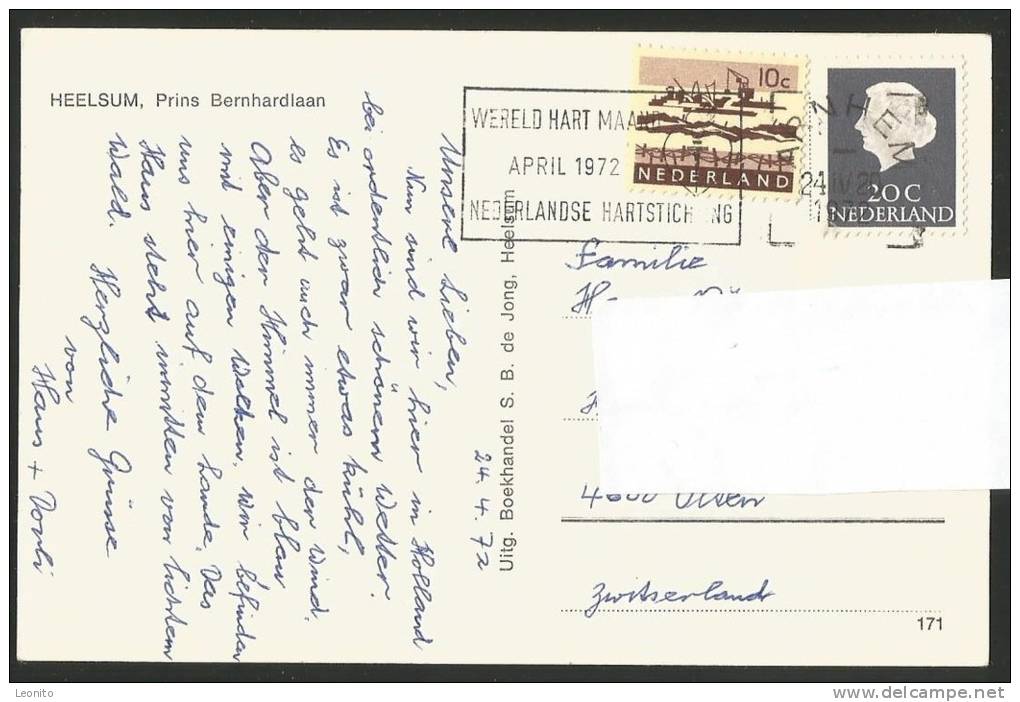 HEELSUM, Prins Bernhardlaan
24.4.72
Unsere Lieben,
Nun sind wir hier in Holland
bei ordentlich schönem Wetter.
Es ist zwar etwas kühl,
es geht auch immer der Wind.
Aber der Himmel ist blau
mit einigen Wolken. Wir befinden
uns hier auf dem Lande. Das
Haus steht inmitten von lichtem
Wald. Herzliche Grüsse
von
Hans + Dorli
Uitg. Boekhandel S. B. de Jong, Heelsum
WERELD HART MAAND
APRIL 1972
NEDERLANDSE HARTSTICHTING
10c
NEDERLAND
ARNHEM
24 IV 20
1972
20 C
NEDERLAND
Familie
4600 Olten
Zwitserland
171
Leonito
www.delcampe.net